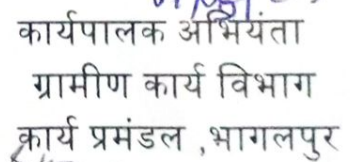 कार्यपालक अभियंता
ग्रामीण कार्य विभाग
कार्य प्रमंडल ,भागलपुर